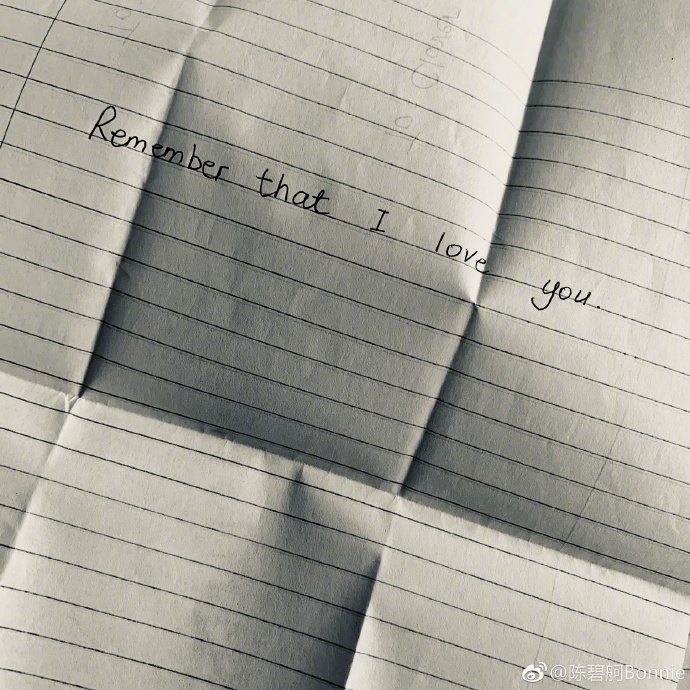 Remember that I love you.
@陈碧舸Bonnie